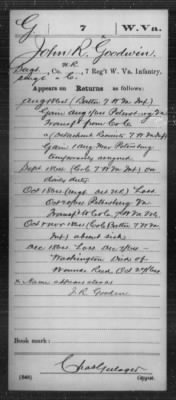 G | 7 | W. Va.
John R. Goodwin
Sergt, Co. N.R., 7 Reg't W. Va. Infantry.
Appears on Returns as follows:
Aug 1864 (Battn 7 W Va Inf)
Gain Aug 1/64 Petersburg Va
Transf'd from Co C
(Detachment Recruits 7 W Va Inf)
Gain 1 Aug near Petersburg
temporarily assigned
Sept 1864 (Co C 7 W Va Inf) on
daily duty
Oct 1864 Loss
Oct Petersburg Va
Transf'd to Co C 7 W Va Inf
Oct & Nov 1864 (Co C Battn 7 W Va
Inf) absent sick
Dec 1864 Loss Dec 7/64
Washington Died of
Wounds Recd Oct 27/64
Name appears also as
J. R. Goodwin
Book mark:
(646)
Copyist.